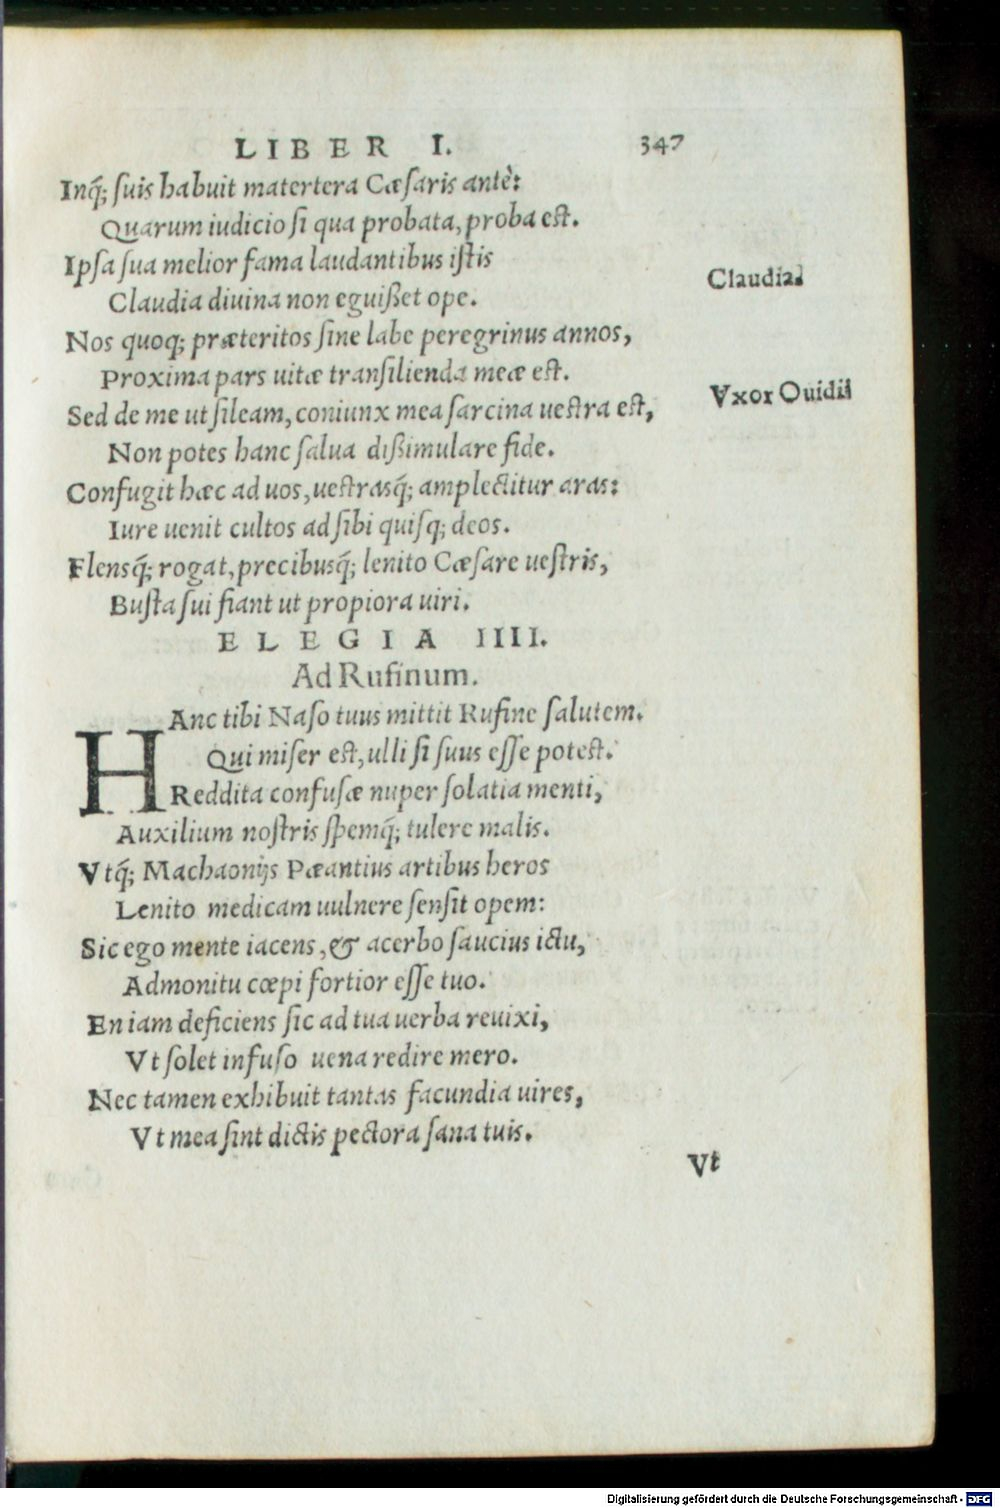 LIBER I. 347
Inq́; suis habuit matertera Cæsaris antè:
Quarum iudicio si qua probata, proba est.
Ipsa sua melior fama laudantibus istis
Claudia.
Claudia diuina non eguißet ope.
Nos quoq; præteritos sine labe peregrinus annos,
Proxima pars uitæ transilienda meæ est.
Vxor Ouidii
Sed de me ut sileam, coniunx mea sarcina uestra est,
Non potes hanc salua dißimulare fide.
Confugit hæc ad uos, uestrasq́; amplectitur aras:
Iure uenit cultos ad sibi quisq; deos.
Flensq́; rogat, precibusq́; lenito Cæsare uestris,
Busta sui fiant ut propiora uiri.
ELEGIA IIII.
Ad Rufinum.
HAnc tibi Naso tuus mittit Rufine salutem.
Qui miser est, ulli si suus esse potest.
Reddita confusæ nuper solatia menti,
Auxilium nostris spemq́; tulere malis.
Vtq́; Machaonijs Pæantius artibus heros
Lenito medicam uulnere sensit opem:
Sic ego mente iacens, & acerbo saucius ictu,
Admonitu cœpi fortior esse tuo.
En iam deficiens sic ad tua uerba reuixi,
Vt solet infuso uena redire mero.
Nec tamen exhibuit tantas facundia uires,
Vt mea sint dictis pectora sana tuis.
Vt
Digitalisierung gefördert durch die Deutsche Forschungsgemeinschaft - DFG